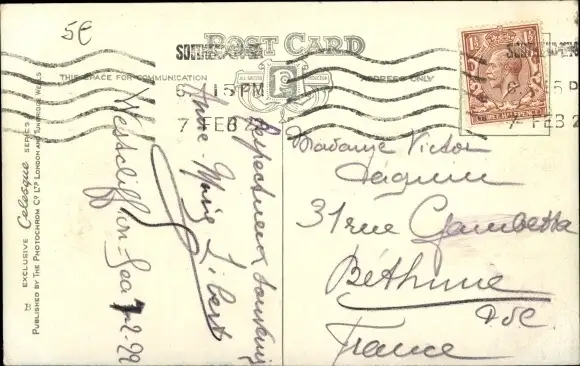 5€
POST CARD
THIS SPACE FOR COMMUNICATION
ADDRESS ONLY
6 15 PM
7 FEB 2
6 15 P
7 FEB 2
1½ 1½
EXCLUSIVE Celesque SERIES
PUBLISHED BY THE PHOTOCHROM CO. LTD LONDON AND TUNBRIDGE WELLS
Westcliff-on-Sea 7-2-29
André-Marie Libert
Respectueux souvenirs
Madame Victor
31 rue Gambetta
Béthune
P de C.
France